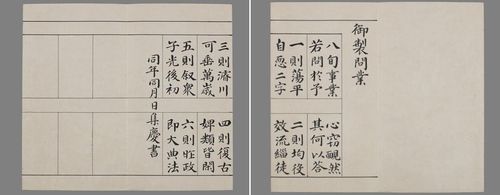 御製問業
八旬事業 心竊靦然
若問於予 其何以答
一則蕩平 二則均役
自恧二字 效流緇徒
三則濬川 四則復古
可垂萬歲 婢類皆閒
五則叙衆 六則政
光後初 即大典法
同年同月日集慶書